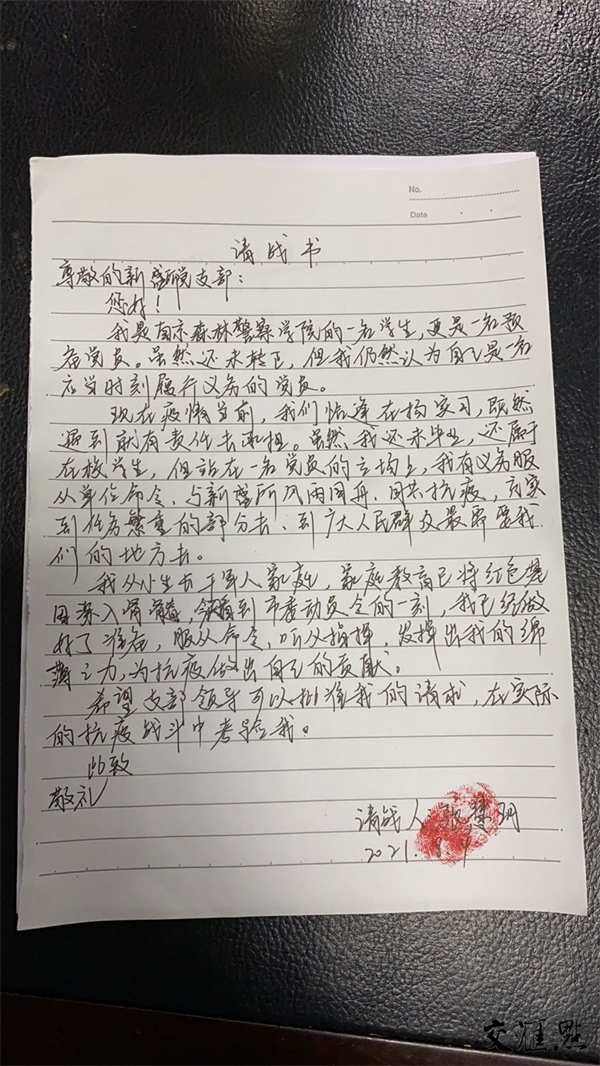 No.
Date
请战书
尊敬的新盛所党支部：
您好！
我是南京森林警察学院的一名学生，更是一名预
备党员。虽然还未转正，但我仍然认为自己是一名
应当时刻履行义务的党员。
现在疫情当前，我们恰逢在扬实习，既然
遇到就有责任去承担。虽然我还未毕业，还属于
在校学生，但站在一名党员的立场上，我有义务服
从单位命令、与新盛所风雨同舟、同共抗疫，应当
到任务繁重的部分去、到广大人民群众最需要我
们的地方去。
我从小生长于军人家庭，家庭教育已将红色基
因深入骨髓，看到市动员令的一刻，我已经做
好了准备，服从命令，听从指挥，发挥出我的绵
薄之力，为抗疫做出自己的贡献。
希望支部领导可以批准我的请求，在实际
的抗疫战斗中考验我。
此致
敬礼
请战人：
2021.8.4
交汇点